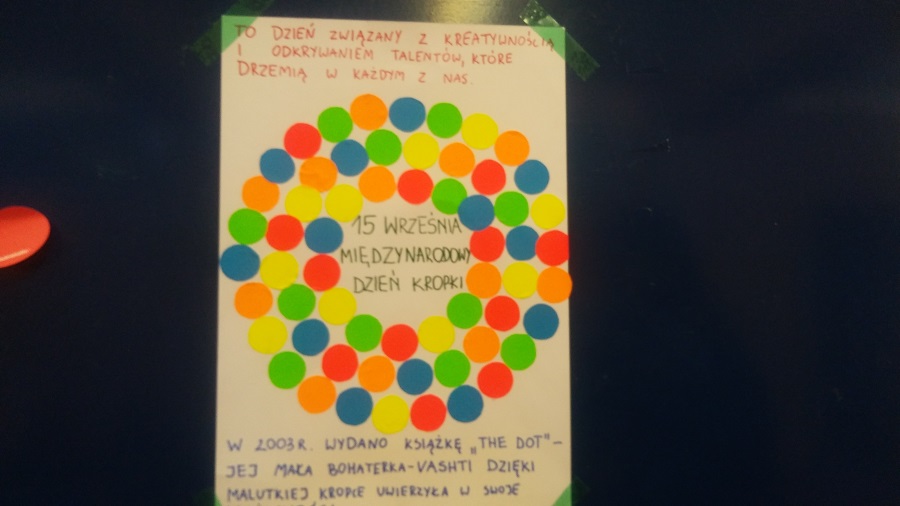 TO DZIEŃ ZWIĄZANY Z KREATYWNOŚCIĄ
I ODKRYWANIEM TALENTÓW, KTÓRE
DRZEMIĄ W KAŻDYM Z NAS.
15 WRZEŚNIA
MIĘDZYNARODOWY
DZIEŃ KROPKI
W 2003R. WYDANO KSIĄŻKĘ „THE DOT" –
JEJ MAŁA BOHATERKA - VASHTI DZIĘKI
MALUTKIEJ KROPCE UWIERZYŁA W SWOJE